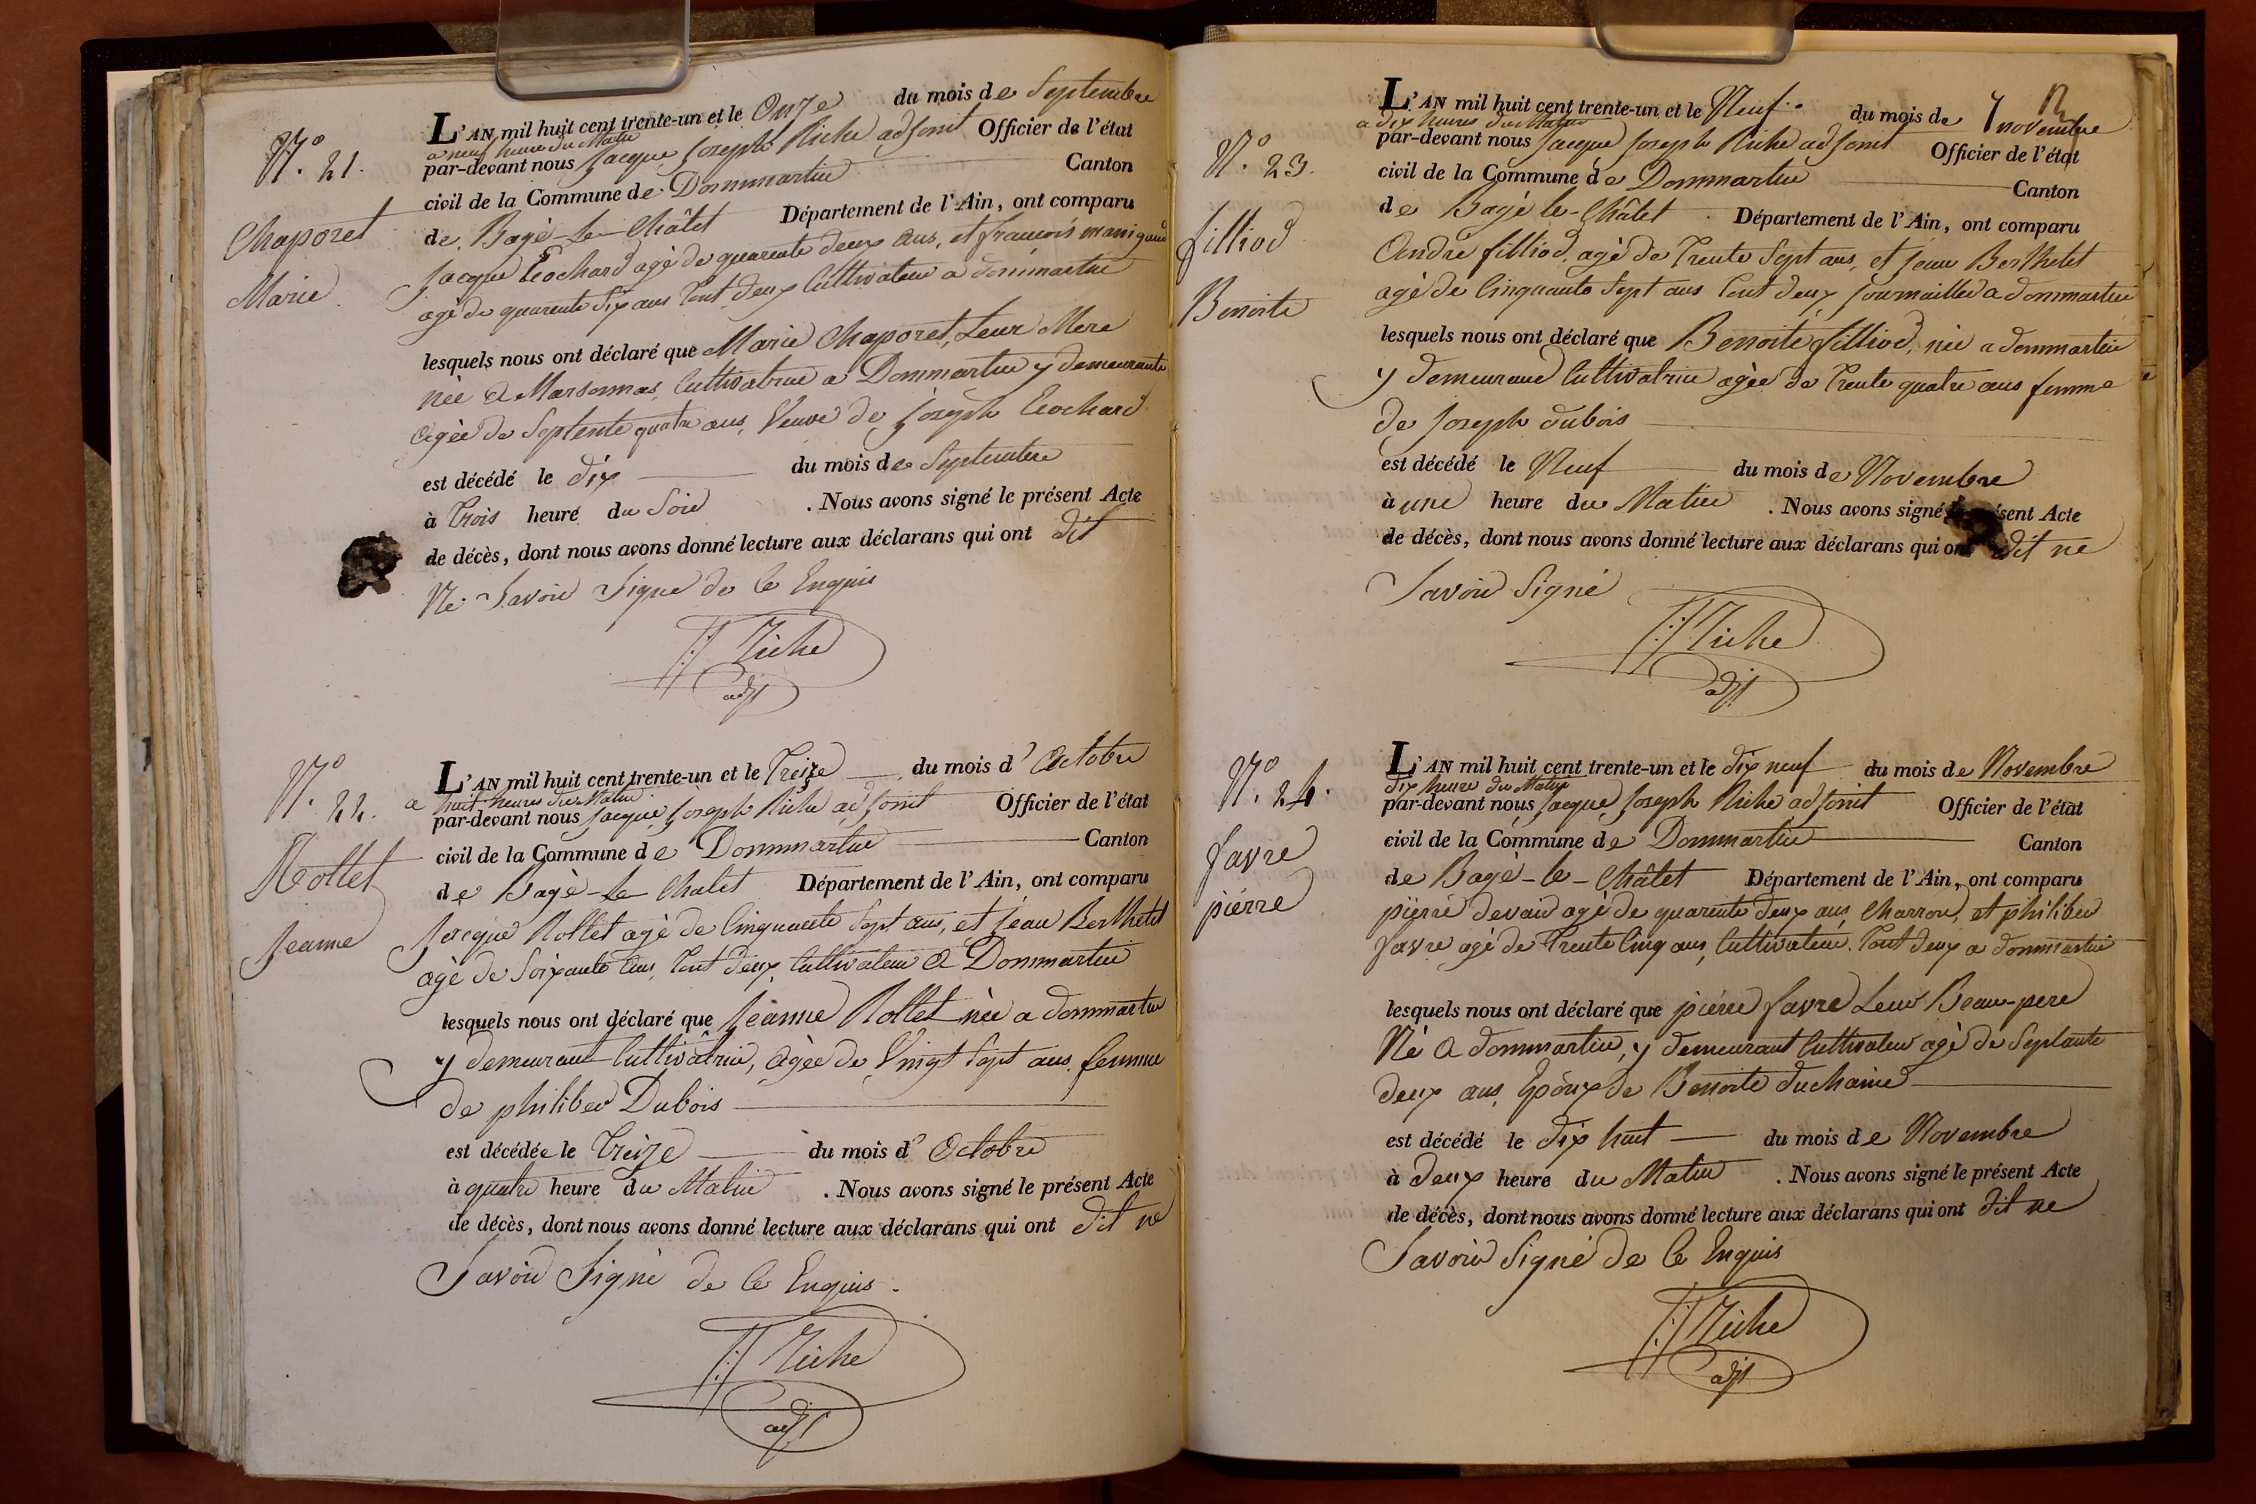 N.° 21.
Chaporet
Marie
L'AN mil huit cent trente-un et le Onze du mois de Septembre
a neuf heure du Matin
par-devant nous Jacque Joseph Riche adjoint Officier de l'état
civil de la Commune de Dommartin Canton
de Bagé-le-Châtet Département de l'Ain, ont comparu
Jacque Ecochard agé de quarente deux ans, et francois manigand
agé de quarente six ans tout deux Cultivateur a dommartin
lesquels nous ont déclaré que Marie Chaporet, Leur Mere
née a Marsonnas, Cultivatrice a Dommartin y demeurante
agée de Septente quatre ans, Veuve de Joseph Ecochard
est décédé le dix du mois de Septembre
à trois heure du Soir . Nous avons signé le présent Acte
de décès, dont nous avons donné lecture aux déclarans qui ont dit
Ne Savoir Signe de ce Enquis
JJ Riche
adjt
N.° 22.
Rollet
Jeanne
L'AN mil huit cent trente-un et le Treize du mois d'Octobre
a huit heures du Matin
par-devant nous Jacque Joseph Riche adjoint Officier de l'état
civil de la Commune de Dommartin Canton
de Bagé-le Chatet Département de l'Ain, ont comparu
Jacque Rollet agé de Cinquante Sept ans, et Jean Berthelet
agé de Soixante ans, tout deux Cultivateur a Dommartin
lesquels nous ont déclaré que Jeanne Rollet née a dommartin
y demeurant Cultivatrice, agée de Vingt Sept ans, femme
de philiber Dubois
est décédée le Treize du mois d'Octobre
à quatre heure du Matin . Nous avons signé le présent Acte
de décès, dont nous avons donné lecture aux déclarans qui ont dit ne
Savoir Signé de ce Enquis.
JJ Riche
adjt
N.° 23.
filliod
Benoite
L'AN mil huit cent trente-un et le Neuf du mois de novembre
a dix heures du Matin
par-devant nous Jacque Joseph Riche adjoint Officier de l'état
civil de la Commune de Dommartin Canton
de Bagé le-Châtet Département de l'Ain, ont comparu
André filliod, agé de Trente Sept ans, et Jean Berthelet
agé de Cinquante Sept ans tout deux Journaillier a dommartin
lesquels nous ont déclaré que Benoite filliod, née a dommartin
y demeurand Cultivatrice agée de Trente quatre ans femme
de Joseph dubois
est décédé le Neuf du mois de Novembre
à une heure du Matin . Nous avons signé présent Acte
de décès, dont nous avons donné lecture aux déclarans qui ont dit ne
Savoir Signé
JJ Riche
adjt
N.° 24.
favre
piérre
L'AN mil huit cent trente-un et le dix neuf du mois de Novembre
dix heure du Matin
par-devant nous Jacque Joseph Riche adjoint Officier de l'état
civil de la Commune de Dommartin Canton
de Bagé-le-Châtet Département de l'Ain, ont comparu
piérre devaid agé de quarente deux ans, Charron, et philiber
favre agé de Trente Cinq ans, Cultivateur. tout deux a dommartin
lesquels nous ont déclaré que piérre favre Leur Beau-pere
Né a dommartin, y demeurant Cultivateur agé de Septante
deux ans, Epoux de Benoite duchaine
est décédé le dix huit du mois de Novembre
à deux heure du Matin . Nous avons signé le présent Acte
de décès, dont nous avons donné lecture aux déclarans qui ont dit ne
Savoir Signé de ce Enquis
JJ Riche
adjt